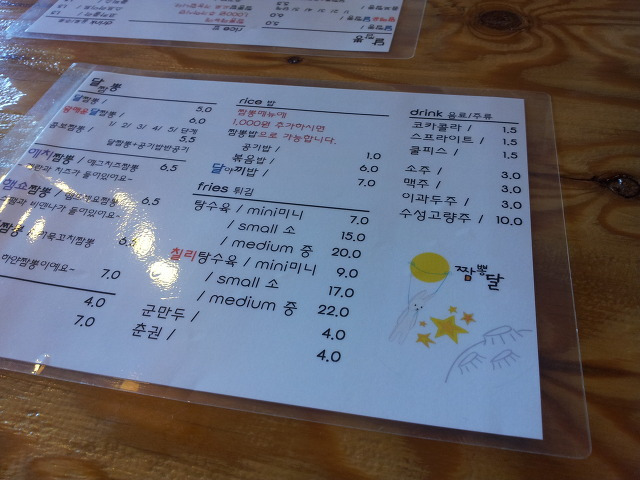 달
짬뽕
달짬뽕 / 5.0
6.0
1/ 2/ 3/ 4/ 5/ 단계
콤보짬뽕 / 5.5
달짬뽕+공기밥반공기
매치짬뽕 / 매그치즈짬뽕 6.5
치즈가 들어있어요~
6.5
비엔나가 들어있어요~
6.5
하얀짬뽕이예요~
7.0
4.0
7.0
rice 밥
짬뽕메뉴에
1,000원 추가하시면
짬뽕밥으로 가능합니다.
공기밥 / 1.0
볶음밥 / 6.0
달아찌밥 / 7.0
fries 튀김
탕수육 / mini미니 7.0
/ small 소 15.0
/ medium 중 20.0
칠리탕수육 / mini미니 9.0
/ small 소 17.0
/ medium 중 22.0
군만두 / 4.0
춘권 / 4.0
drink 음료/주류
코카콜라 / 1.5
스프라이트 / 1.5
쿨피스 / 1.5
소주 / 3.0
맥주 / 3.0
이과두주 / 3.0
수성고량주 / 10.0
짬뽕
달